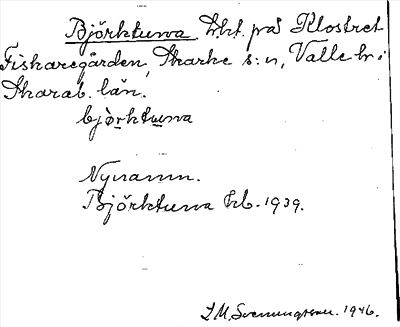 Björktuva, lht. på Klostret
Fiskaregården, Skarke s:n, Valle hd i
Skarab. län.
björktuva
Nynamn.
Björktuva Erb. 1939.
I M, Svenungsson. 1946.